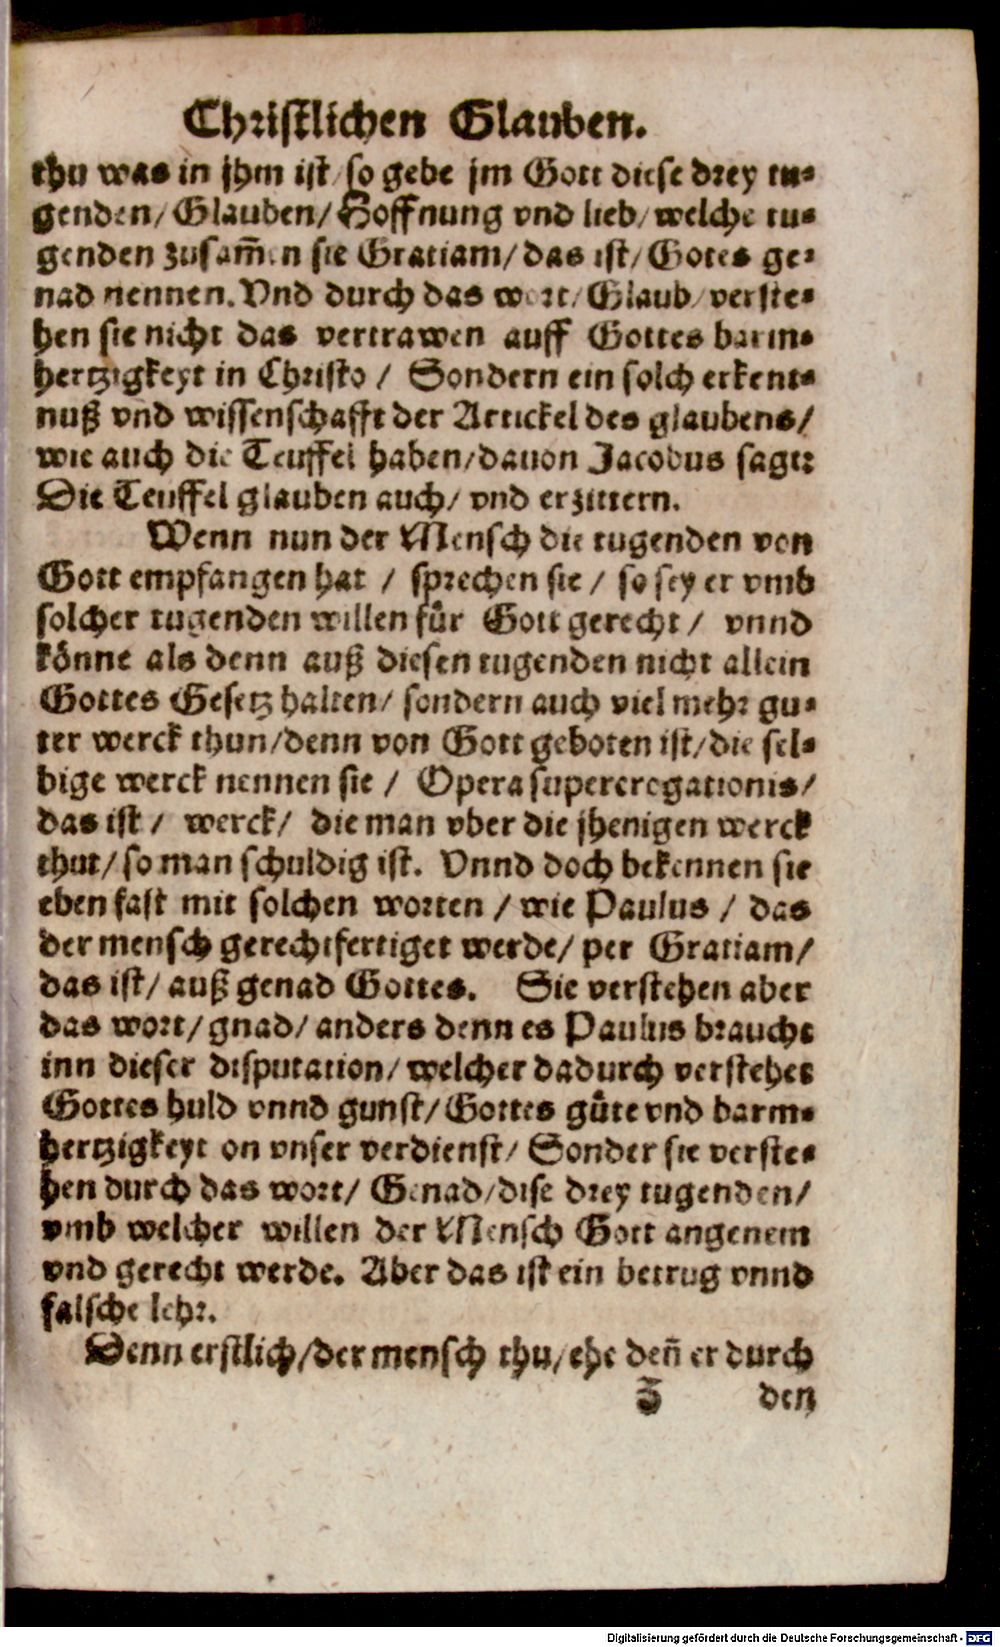 Christlichen Glauben.
thu was in jhm ist / so gebe jm Gott diese drey tu⸗
genden / Glauben / Hoffnung vnd lieb / welche tu⸗
genden zusam̃en sie Gratiam / das ist / Gotes ge⸗
nad nennen. Vnd durch das wort / Glaub / verste⸗
hen sie nicht das vertrawen auff Gottes barm⸗
hertzigkeyt in Christo / Sondern ein solch erkent⸗
nuß vnd wissenschafft der Artickel des glaubens /
wie auch die Teuffel haben / dauon Jacobus sagt:
Die Teuffel glauben auch / vnd erzittern.
Wenn nun der Mensch die tugenden von
Gott empfangen hat / sprechen sie / so sey er vmb
solcher tugenden willen fuͤr Gott gerecht / vnnd
koͤnne als denn auß diesen tugenden nicht allein
Gottes Gesetz halten / sondern auch viel mehr gu⸗
ter werck thun / denn von Gott geboten ist / die sel⸗
bige werck nennen sie / Opera supererogationis /
das ist / werck / die man vber die jhenigen werck
thut / so man schuldig ist. Vnnd doch bekennen sie
eben fast mit solchen worten / wie Paulus / das
der mensch gerechtfertiget werde / per Gratiam /
das ist / auß genad Gottes. Sie verstehen aber
das wort / gnad / anders denn es Paulus braucht
inn dieser disputation / welcher dadurch verstehet
Gottes huld vnnd gunst / Gottes guͤte vnd barm⸗
hertzigkeyt on vnser verdienst / Sonder sie verste⸗
hen durch das wort / Genad / dise drey tugenden /
vmb welcher willen der Mensch Gott angenem
vnd gerecht werde. Aber das ist ein betrug vnnd
falsche lehr.
Denn erstlich / der mensch thu / ehe deñ er durch
Z den
Digitalisierung gefördert durch die Deutsche Forschungsgemeinschaft - DFG